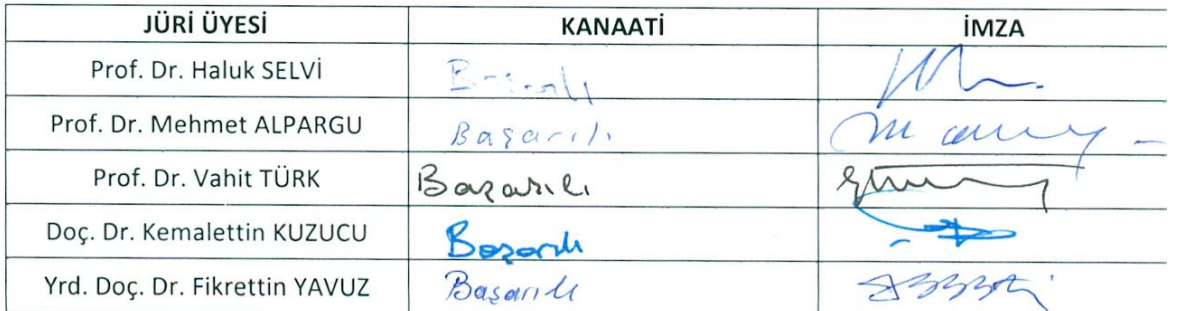 JÜRİ ÜYESİ KANAATİ İMZA
Prof. Dr. Haluk SELVİ Başarılı
Prof. Dr. Mehmet ALPARGU Başarılı
Prof. Dr. Vahit TÜRK Başarılı
Doç. Dr. Kemalettin KUZUCU Başarılı
Yrd. Doç. Dr. Fikrettin YAVUZ Başarılı